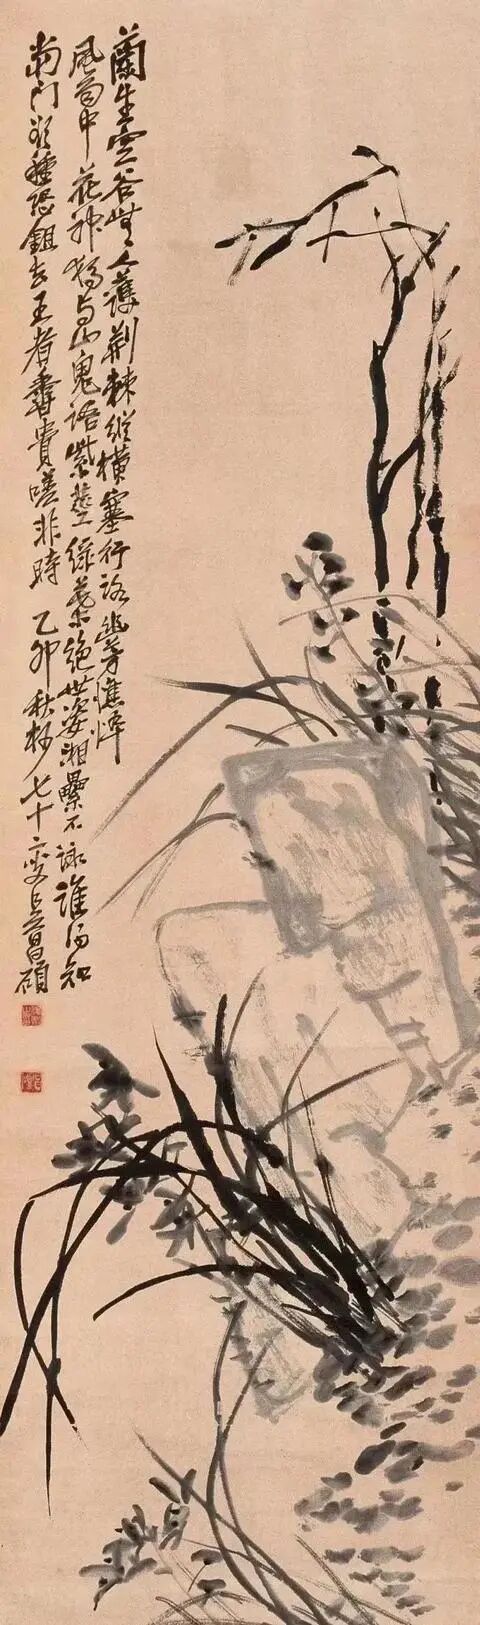 蘭生空谷無人護荆棘縱横塞行路幽芳憔悴
風雨中花神獨与山鬼語紫莖綠葉絕世姿湘纍不詠誰得知
當門欲種恐鉏去王者香貴嗟非時 乙卯秋杪七十二叟吳昌碩